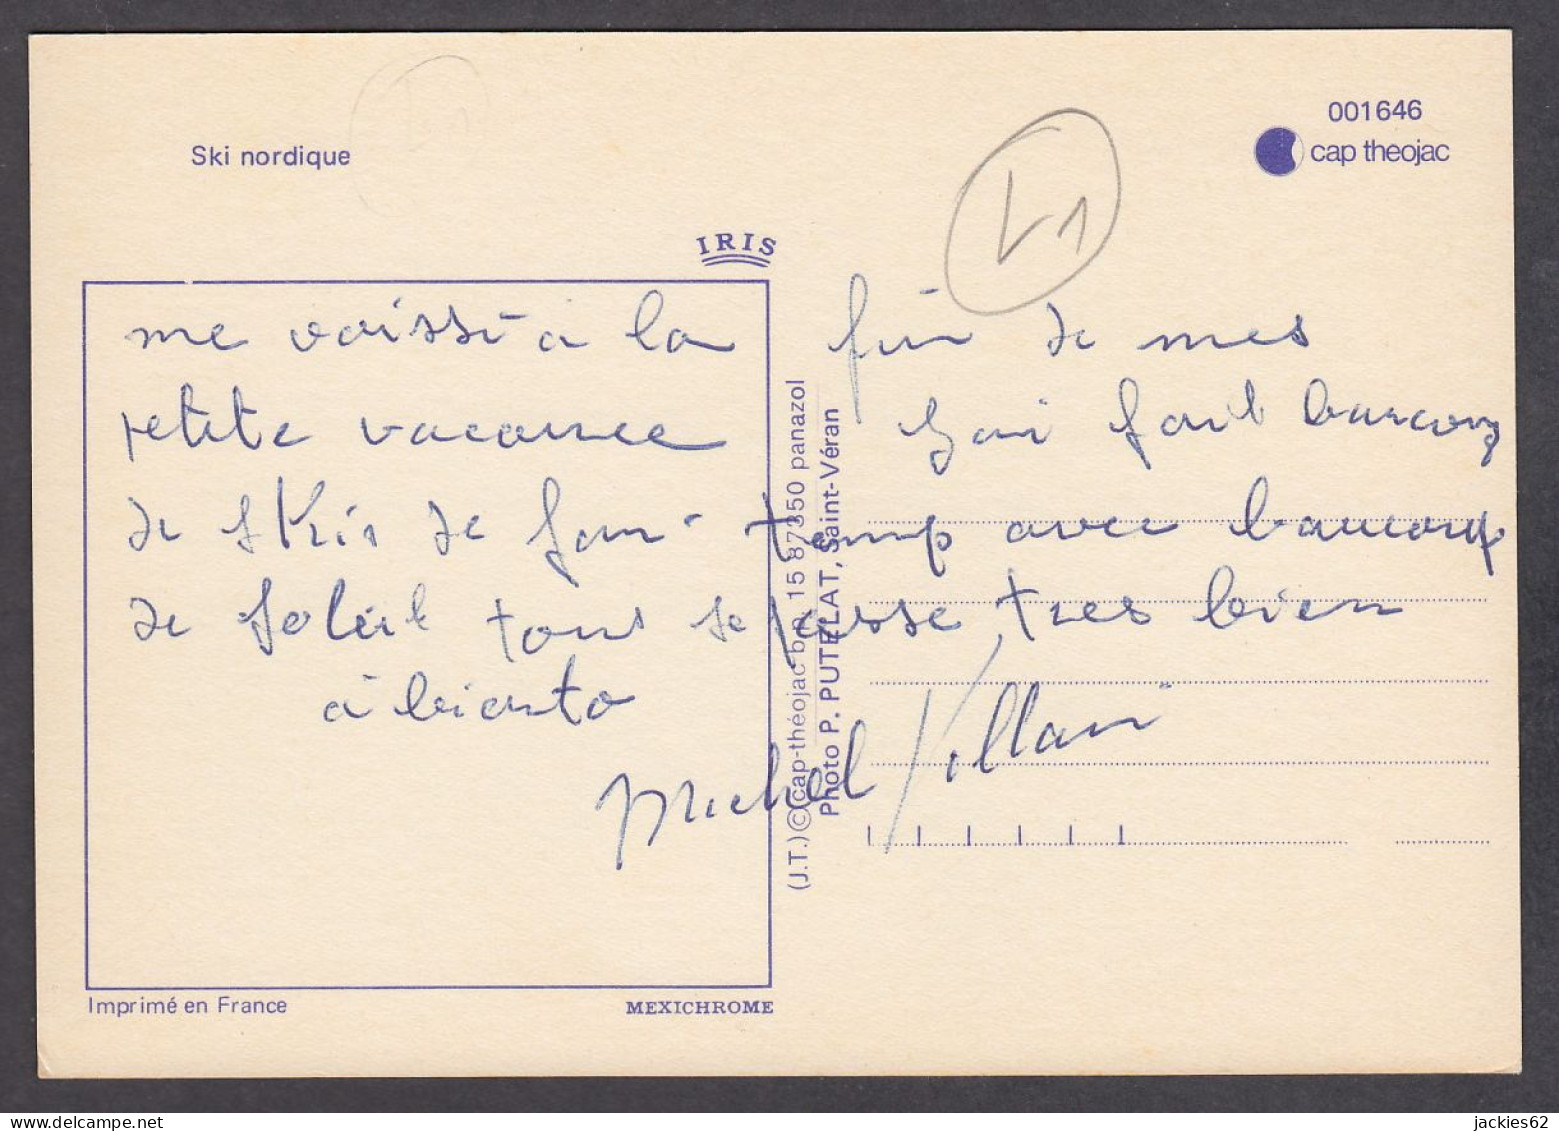 001646
cap theojac
Ski nordique
L1
IRIS
me voissi à la fin de mes
petite vacance Jai fait baucoup
de skis de fon temp avec baucoup
de soleil tous se passe tres bien
à biento
Michel
(J.T.) © cap-théojac b.p. 15 87350 panazol
Photo P. PUTELAT, Saint-Véran
Imprimé en France
MEXICHROME
jackies62